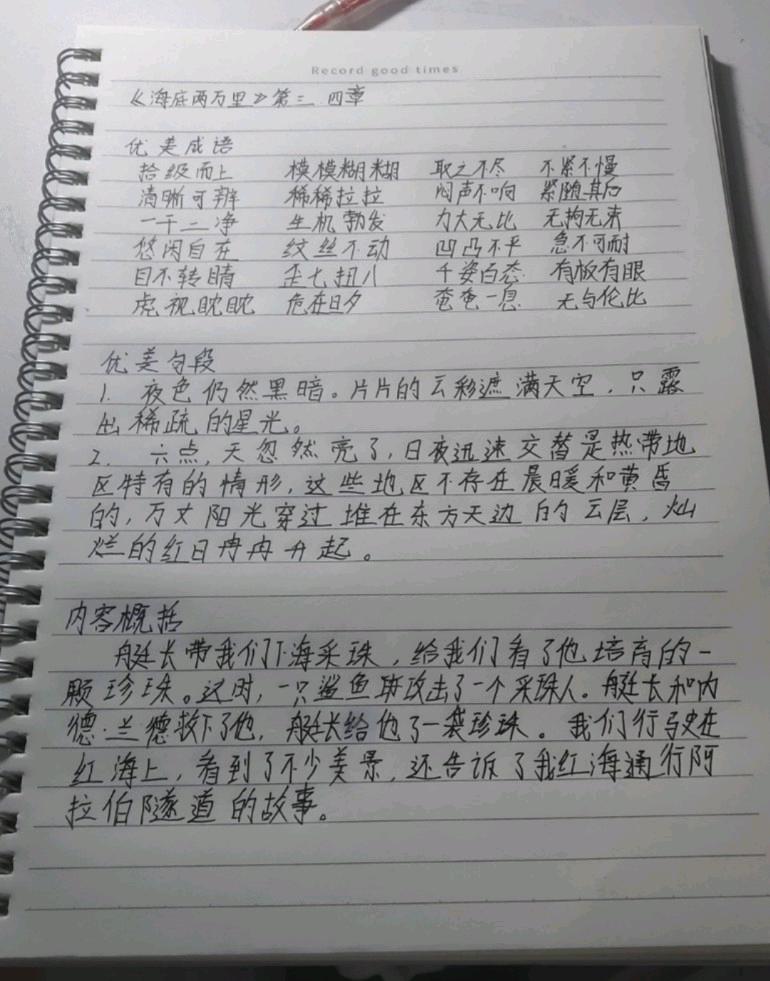 Record good times
《海底两万里》第三 四章
优美成语
拾级而上 模模糊糊 取之不尽 不紧不慢
清晰可辨 稀稀拉拉 闷声不响 紧随其后
一干二净 生机勃发 力大无比 无拘无束
悠闲自在 纹丝不动 凹凸不平 急不可耐
目不转睛 歪七扭八 千姿百态 有板有眼
虎视眈眈 危在旦夕 奄奄一息 无与伦比
优美句段
1. 夜色仍然黑暗。片片的云彩遮满天空,只露
出稀疏的星光。
2. 六点,天忽然亮了,日夜迅速交替是热带地
区特有的情形,这些地区不存在晨暖和黄昏
的,万丈阳光穿过堆在东方天边的云层,灿
烂的红日冉冉升起。
内容概括
艇长带我们下海采珠,给我们看了他培育的一
颗珍珠。这时,一只鲨鱼攻击了一个采珠人。艇长和内
德·兰德救下了他,艇长给他了一袋珍珠。我们行驶在
红海上,看到了不少美景,还告诉了我红海通行阿
拉伯隧道的故事。